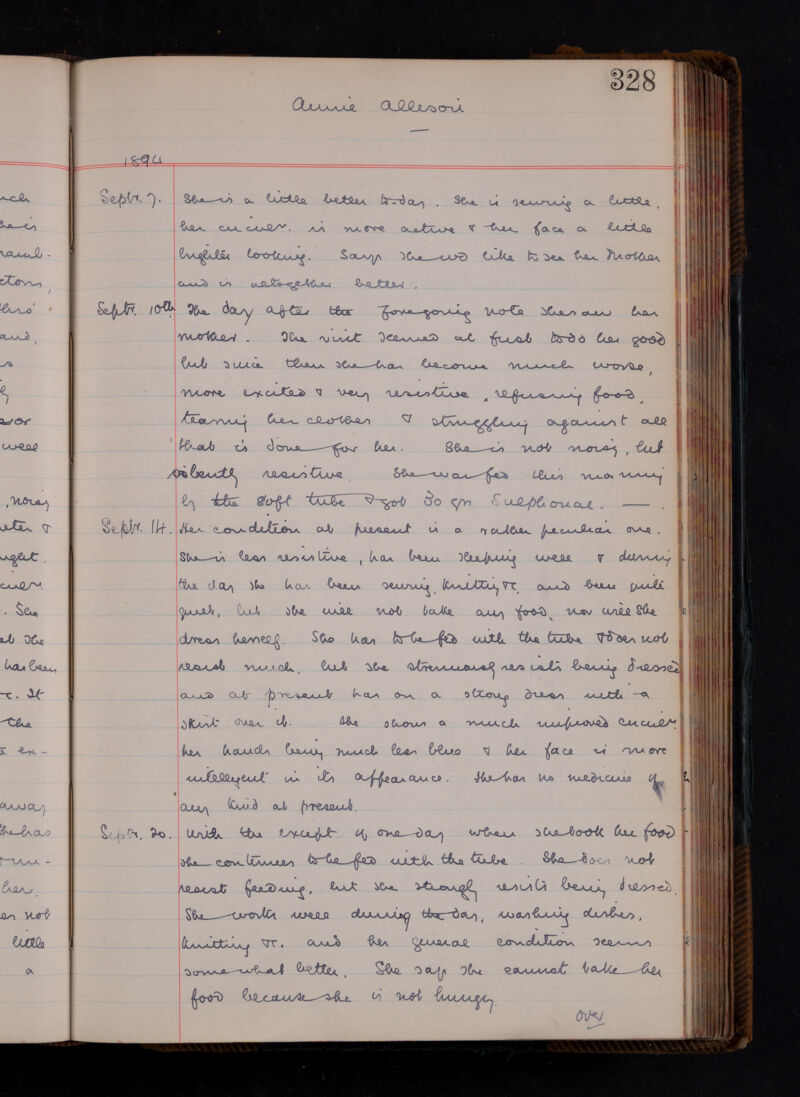 328
Annie Alleson
1894
Septr. 7. She is a little better to-day. She is sewing a little,
her circuln. is more active & her face a little
brighter looking. Says she wd like to see her mother
and is altogether better.
Septr. 10th The day after the foregoing note she saw her
mother. The visit seemed at first to do her good
but since then she has become much worse,
more excited & very resistive, refusing food,
tearing her clothes & struggling against all
that is done for her. She is not noisy, but
violently resistive. She was fed this morning
by the soft tube & got 30 grs Sulphonal. —.
Septr. 14. Her condition at present is a rather peculiar one.
She is less resistive, has been sleeping well & during
the day she has been sewing, knitting &c. and been quite
quiet, but she will not take any food, nor will she
dress herself. She has to be fed with the tube & does not
resist much, but she strenuously resists being dressed
and at present has on a strong dress with a
skirt over it. She shows a much improved circuln.
her hands being much less blue & her face is more
intelligent in its appearance. She has no medicine of
any kind at present.
Septr. 20. With the except of one day when she took her food
she continues to be fed with the tube. She does not
resist feeding, but she strongly resists being dressed.
She works well during the day, washing dishes,
knitting &c. and her general condition seems
somewhat better. She says she cannot take her
food because she is not hungry.
over